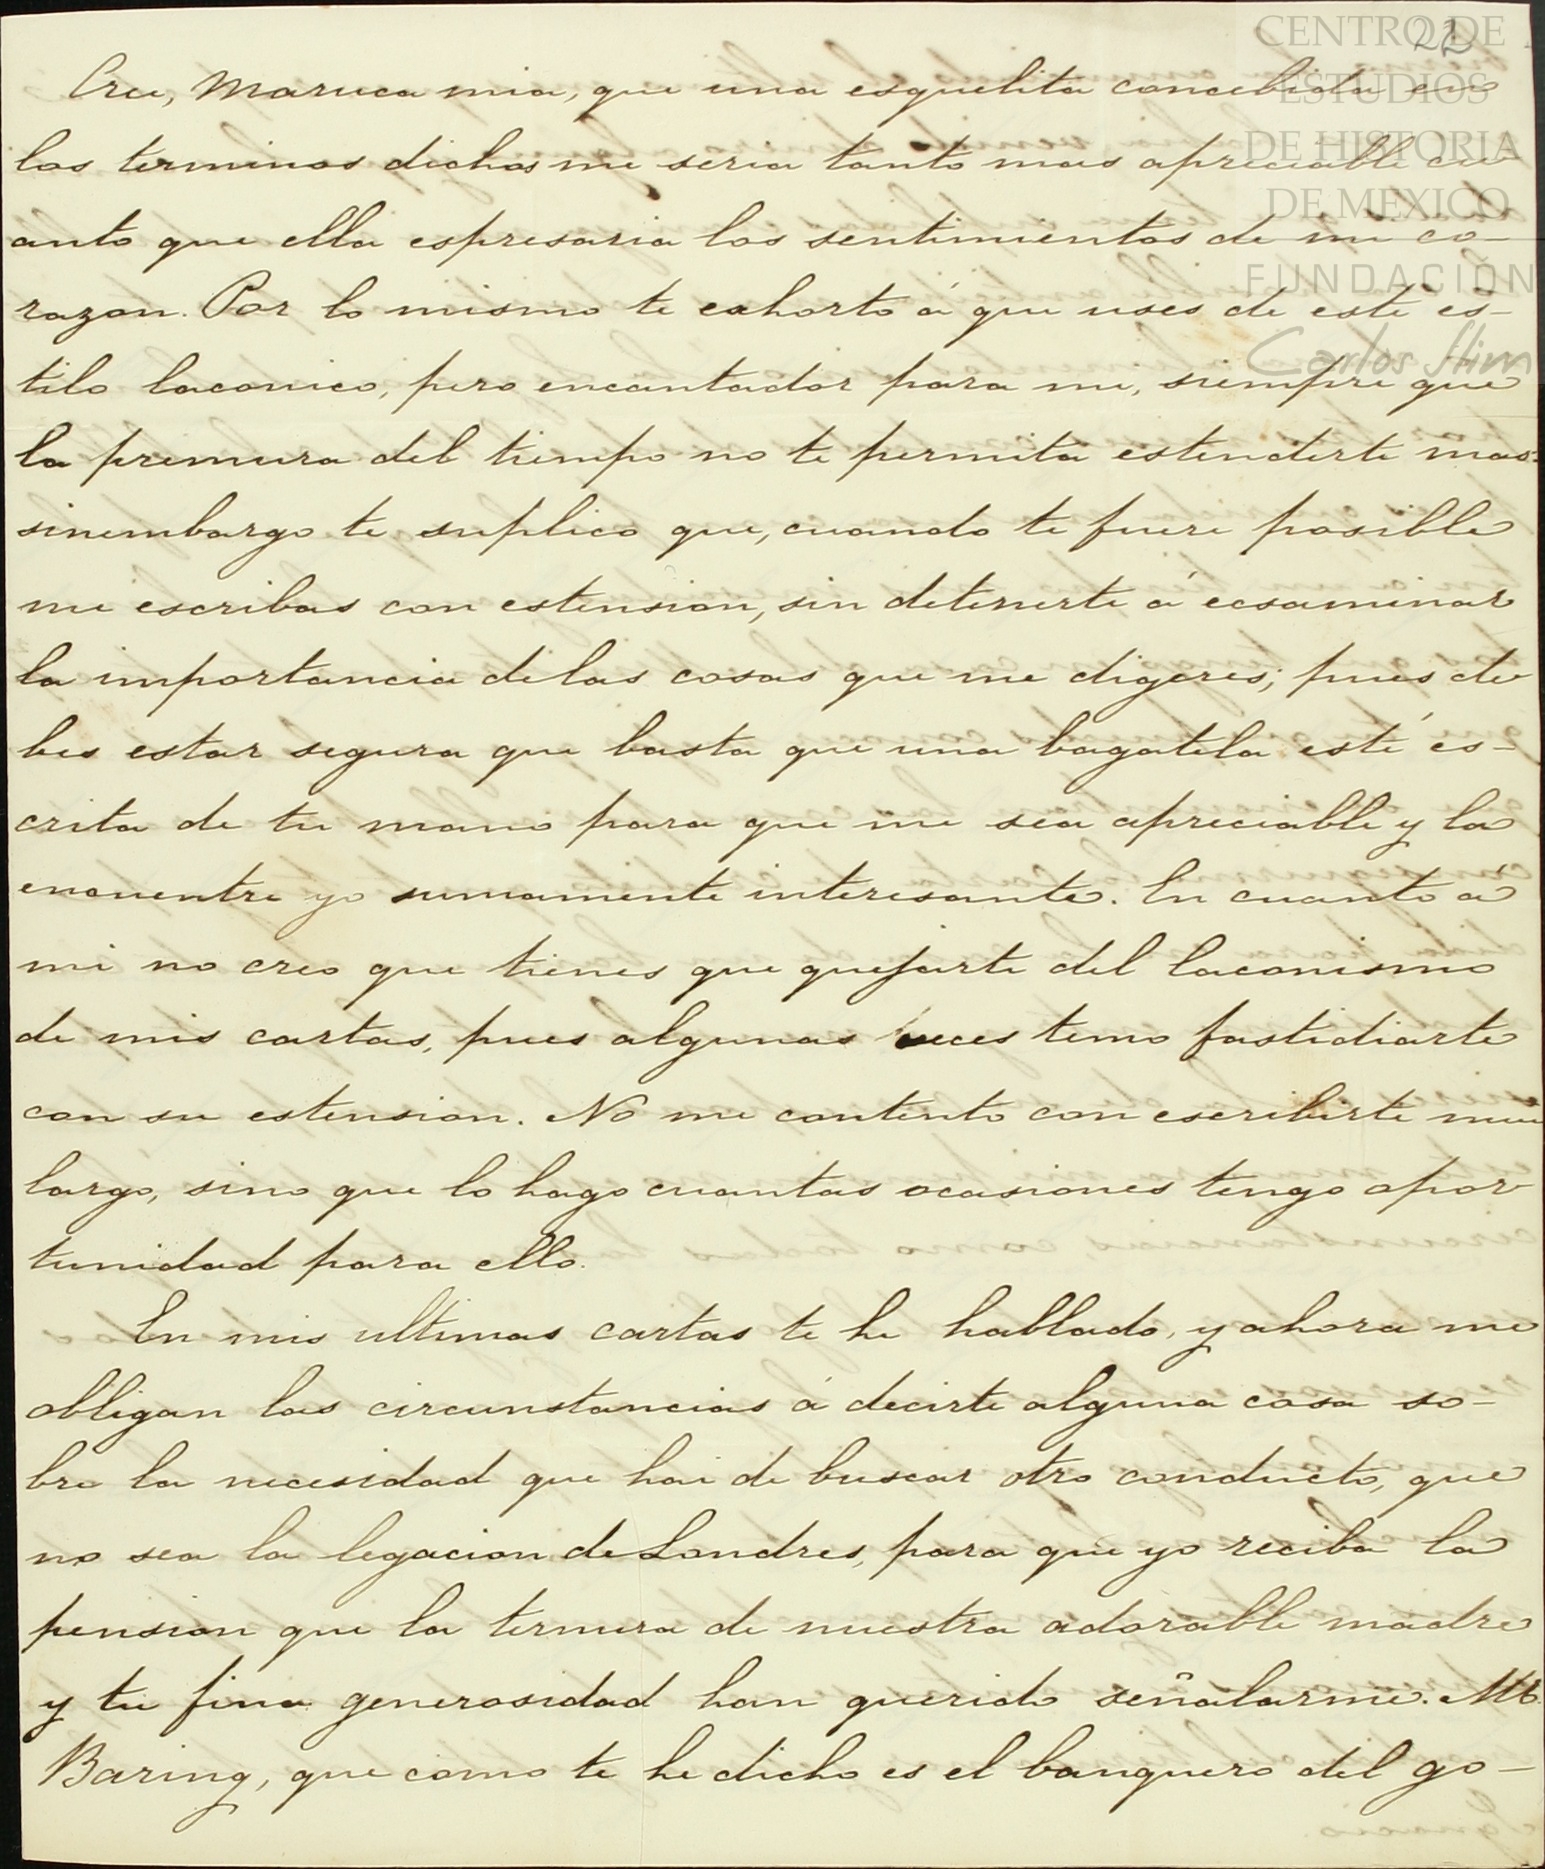 22
CENTRO DE
ESTUDIOS
DE HISTORIA
DE MEXICO
FUNDACIÓN
Carlos Slim
Cree, Maruca mia, que una esquelita concebida en
los terminos dichos me seria tanto mas apreciable cu-
anto que ella espresaria los sentimientos de mi co-
razon. Por lo mismo te exhorto á que uses de este es-
tilo laconico, pero encantador para mi, siempre que
la premura del tiempo no te permita estenderte mas:
sinembargo te suplico que, cuando te fuere posible
me escribas con estension, sin detenerte á ecsaminar
la importancia de las cosas que me digeres; pues de-
bes estar segura que basta que una bagatela esté es-
crita de tu mano para que me sea apreciable y la
encuentre yo sumamente interesante. En cuanto á
mi no creo que tienes que quejarte del laconismo
de mis cartas, pues algunas veces temo fastidiarte
con su estension. No me contento con escribirte mui
largo, sino que lo hago cuantas ocasiones tengo opor-
tunidad para ello.
En mis ultimas cartas te he hablado, y ahora me
obligan las circunstancias á decirte alguna cosa so-
bre la necesidad que hai de buscar otro conducto, que
no sea la legacion de Londres, para que yo reciba la
pension que la ternura de nuestra adorable madre
y tu fina generosidad han querido señalarme. Mr.
Baring, que como te he dicho es el banquero del go-